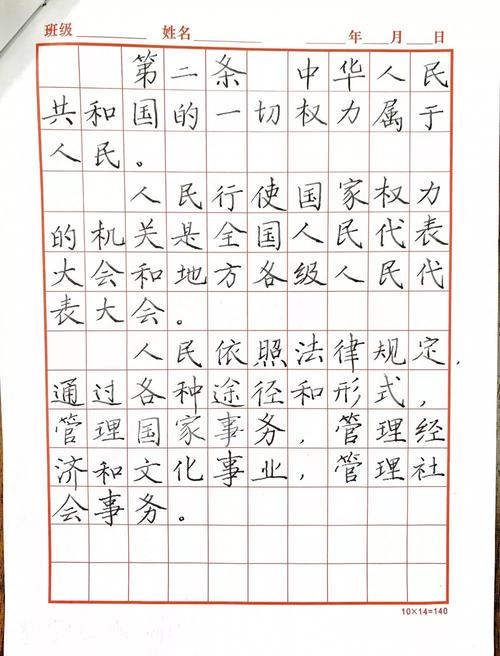 班级 姓名 年 月 日
第二条 中华人民
共和国的一切权力属于
人民。
人民行使国家权力
的机关是全国人民代表
大会和地方各级人民代
表大会。
人民依照法律规定,
通过各种途径和形式,
管理国家事务,管理经
济和文化事业,管理社
会事务。
10×14=140